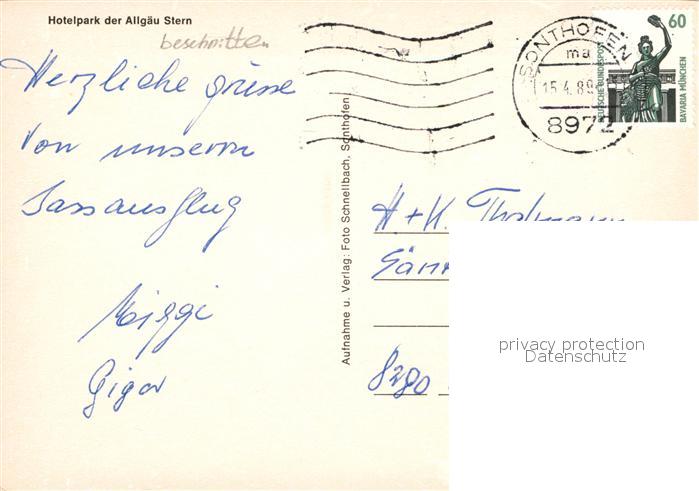 Hotelpark der Allgäu Stern
beschnitten
Herzliche grüsse
von unserm
Jassausflug
Giger
Aufnahme u. Verlag: Foto Schnellbach, Sonthofen
SONTHOFEN
ma
15.4.89
8972
60
DEUTSCHE BUNDESPOST
BAVARIA MÜNCHEN
H + K. Thalmann
8280
privacy protection
Datenschutz